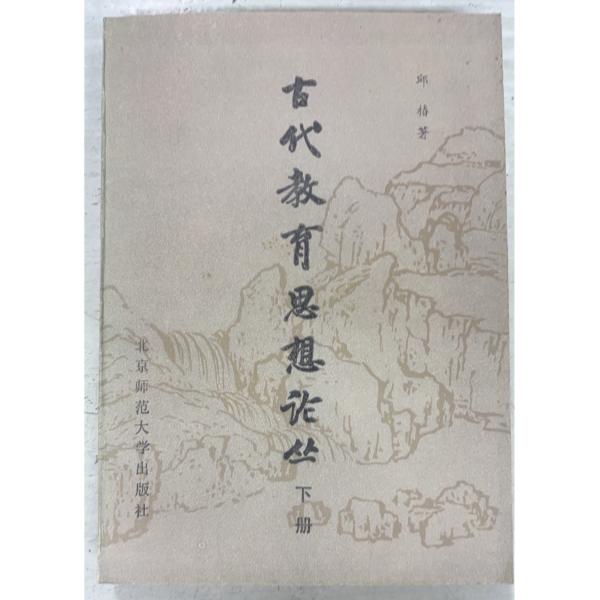 邱椿著
古代教育思想论丛
下册
北京师范大学出版社